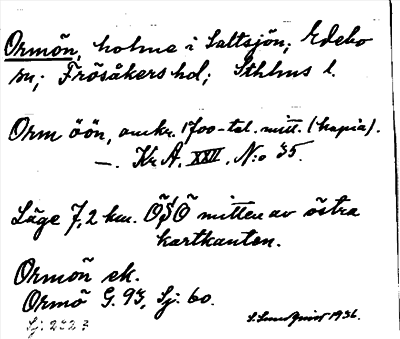 Ormön, holme i Saltsjön; Edebo
sn; Frösåkers hd; Sthlms l.
Orm öön, omkr. 1700-tal. mitt. (kopia).
—. Kr A. XXII. N:o 35.
Läge 7,2 km. OSO mitten av östra
kartkanten.
Ormön ek.
Ormö G. 93, Sj: 60.
Sj: 202
1936.